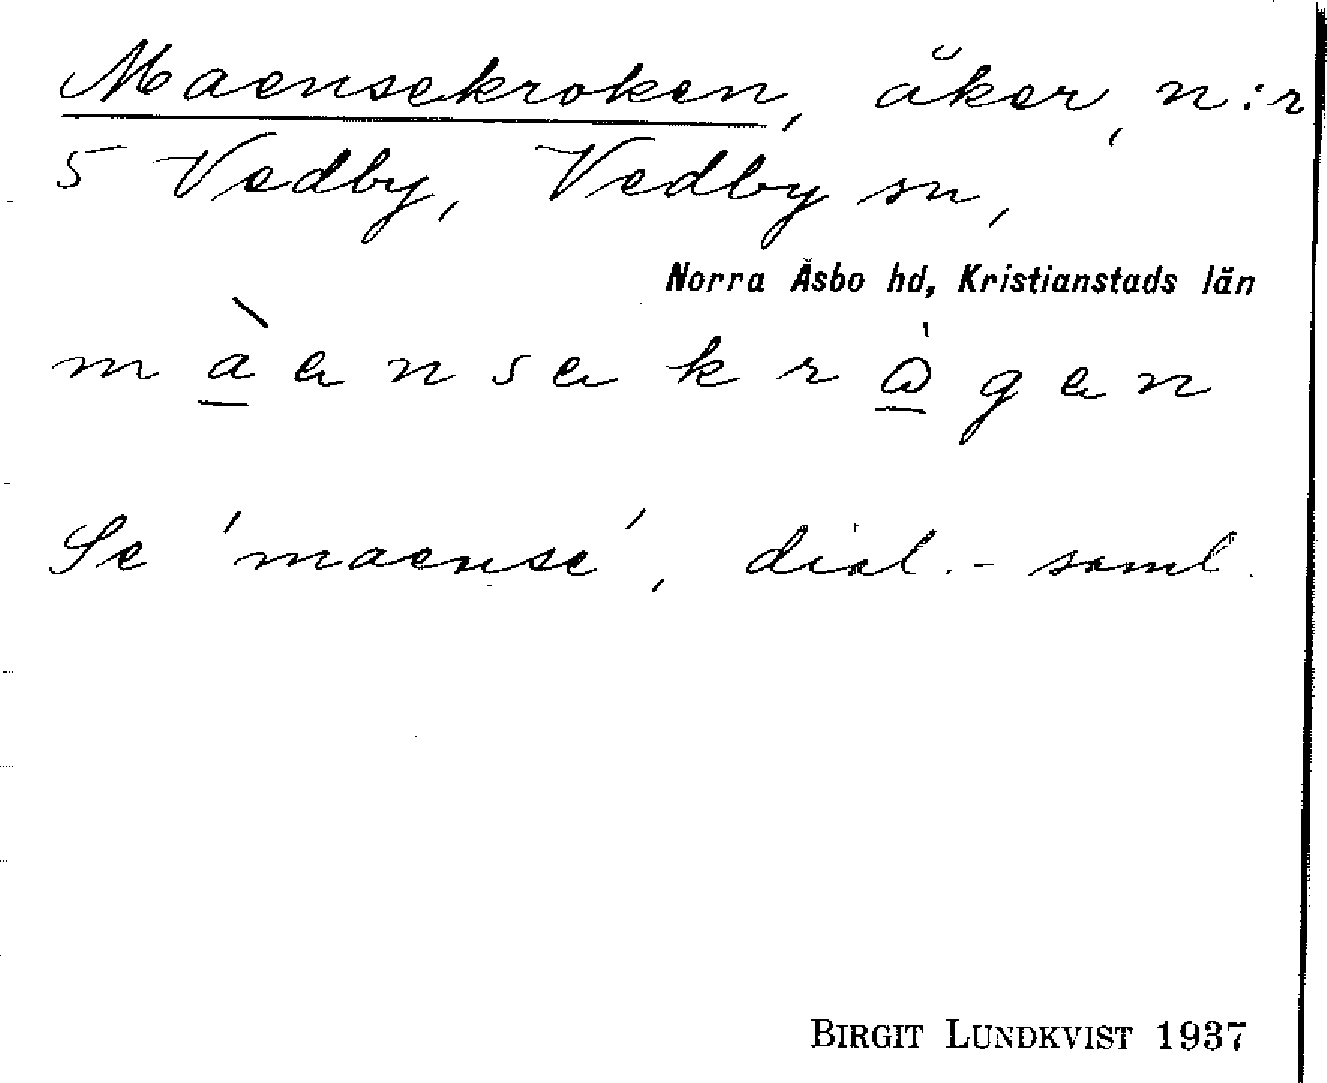 Maensekroken, åker, n:r
5 Vedby, Vedby sn,
Norra Åsbo hd, Kristianstads län
m à e n s e k r ò g e n
Se 'maense', dial.-saml.
BIRGIT LUNDKVIST 1937